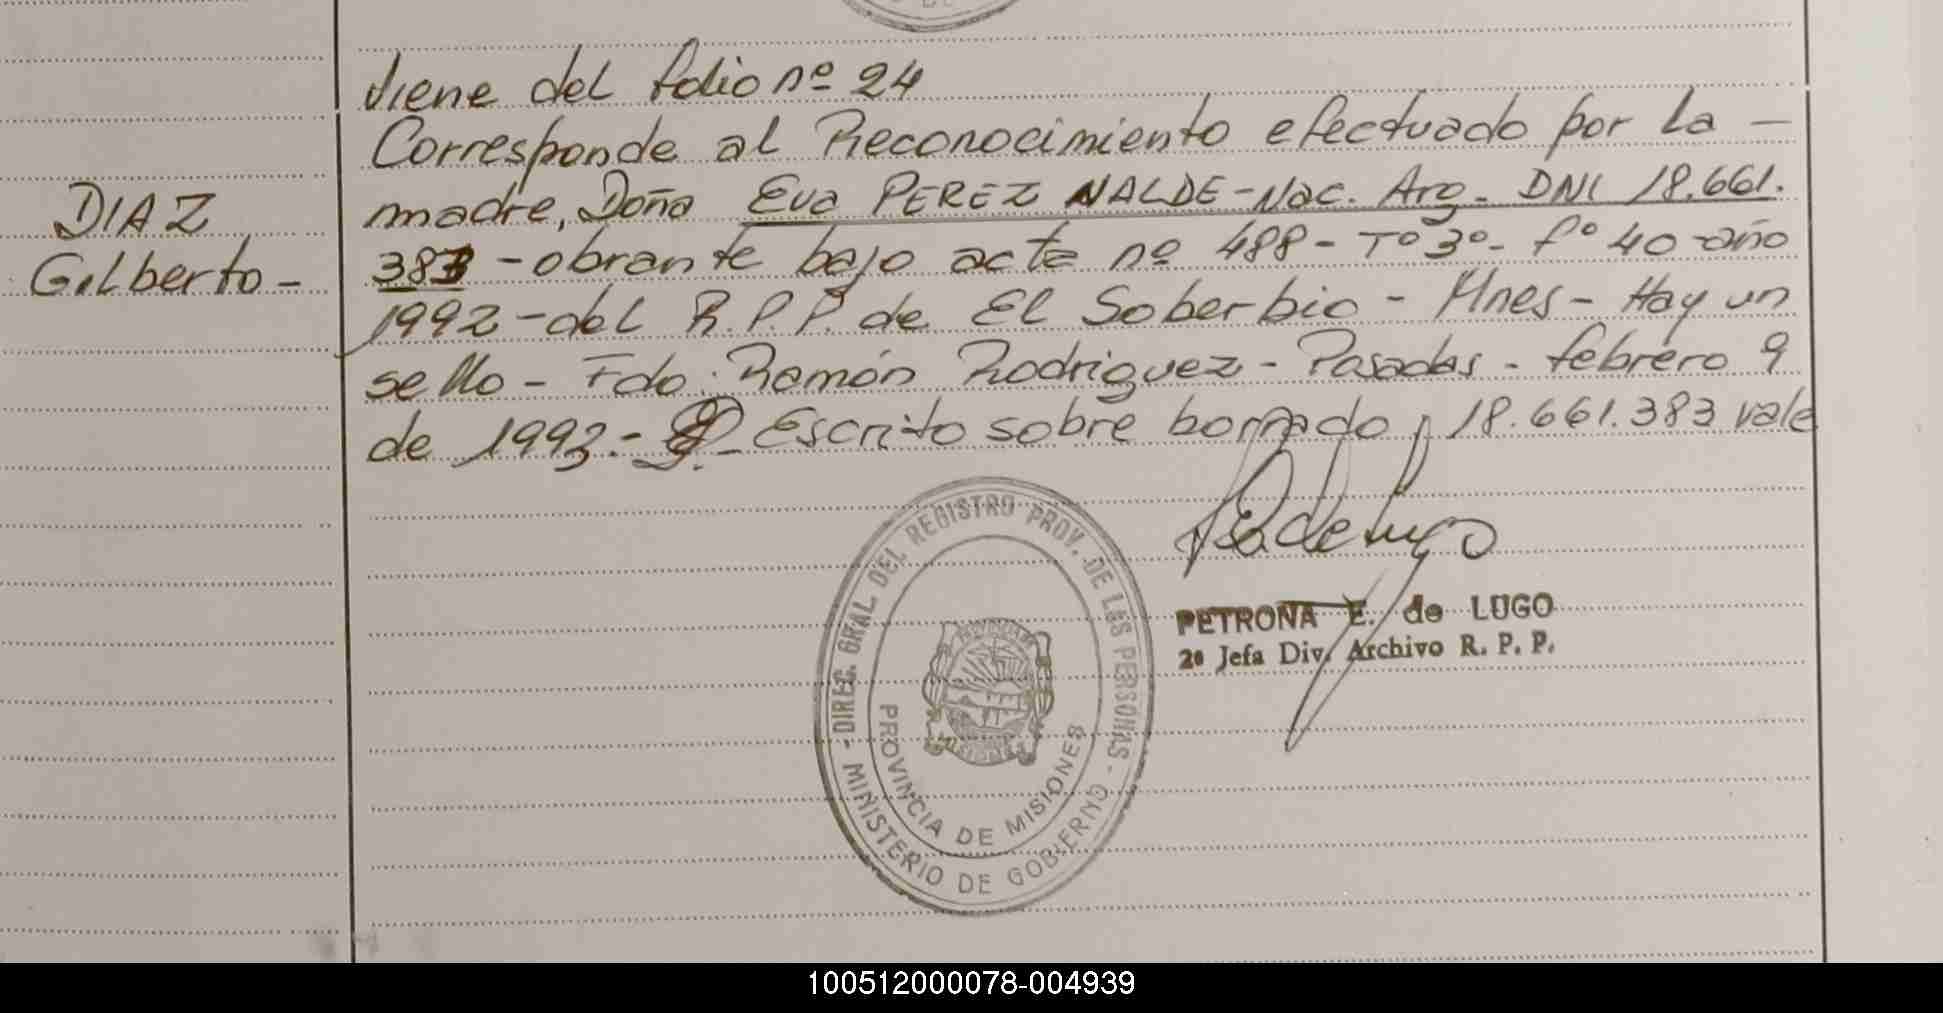 viene del folio nº 24
Corresponde al Reconocimiento efectuado por la -
DIAZ
Gilberto -
madre, Doña Eva PEREZ NALDE - Nac. Arg - DNI 18.661.
383 - obrante bajo acta nº 488 - Tº 3º - fº 40 - año
1992 - del R.P.P. de El Soberbio - Mnes - Hay un
sello - Fdo. Ramón Rodriguez - Posadas - febrero 9
de 1993. - Escrito sobre borrado, 18.661.383 vale
PETRONA E. de LUGO
2ª Jefa Div. Archivo R. P. P.
- DIREC. GRAL. DEL REGISTRO PROV. DE LAS PERSONAS -
MINISTERIO DE GOBIERNO
PROVINCIA DE MISIONES
100512000078-004939